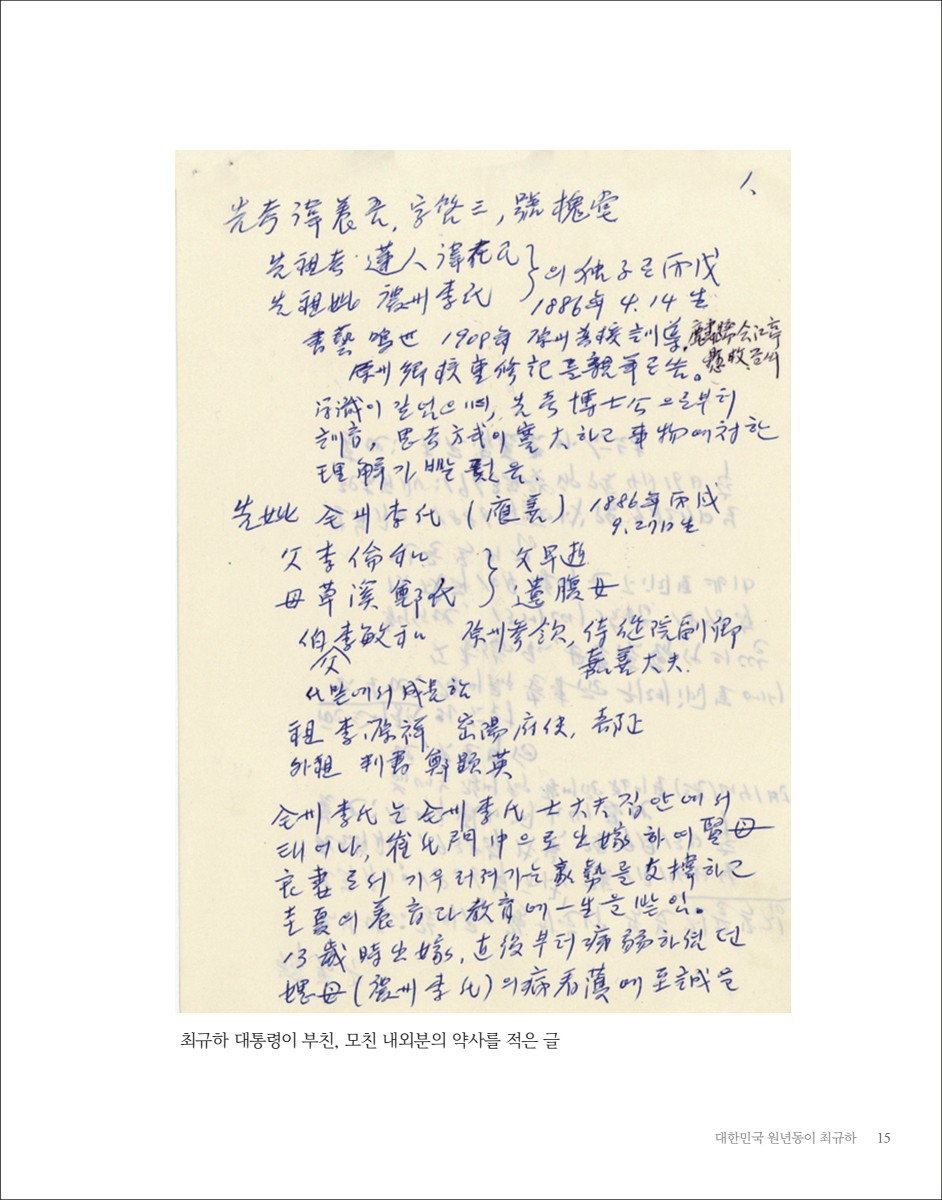 1.
先考 諱 養吾, 字 啓三, 號 槐雲
先祖考 蓮人 諱 在民 } 의 独子로 丙戌
先祖妣 慶州李氏 1886年 4.14 生
書藝 鳴世 1908年 原州 鄕校 訓導,
原州鄕校重修記를 親筆로 씀。
學識이 깊었으며, 先考 博士公으로부터
訓育, 思考方式이 寬大하고 事物에 対한
理解가 빨랐음
先妣 全州李氏 (應善) 1886年 丙戌
9. 27日 生
父 李倫和 } 父早逝
母 草溪鄭氏 遺腹女
伯父 李敏和 原州參領, 侍從院副卿
嘉善大夫.
祖 李源祥 密陽府使,
外祖 判書 鄭顯英
全州李氏는 全州李氏 士大夫 집안에서
태어나, 崔氏門中으로 出嫁하여 賢母
良妻로서 기우러져가는 家勢를 支撑하고
圭夏의 養育과 教育에 一生을 바침。
13歲時 出嫁, 直後부터 病弱하셨던
媤母(慶州李氏)의 病看護에 至誠을
최규하 대통령이 부친, 모친 내외분의 약사를 적은 글
대한민국 원년둥이 최규하 15